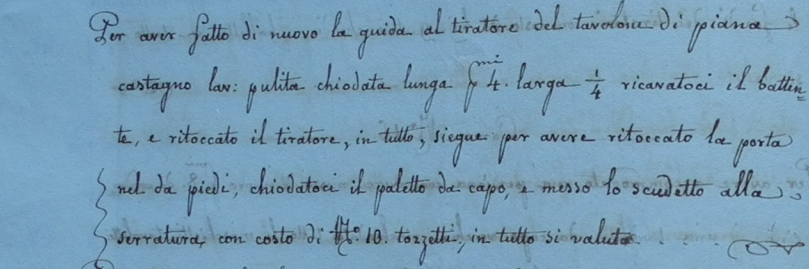 Per aver fatto di nuovo la guida al tiratore del tavolone di piana
castagno lav: pulita chiodata lunga p mi 4. larga 1/4 ricavatoci il batten=
te, e ritoccato il tiratore, in tutto, siegue per avere ritoccato la porta
nel da piedi, chiodatoci il paletto da capo, e messo lo scudetto alla
serratura, con costo di No. 10. tozzetti, in tutto si valuta